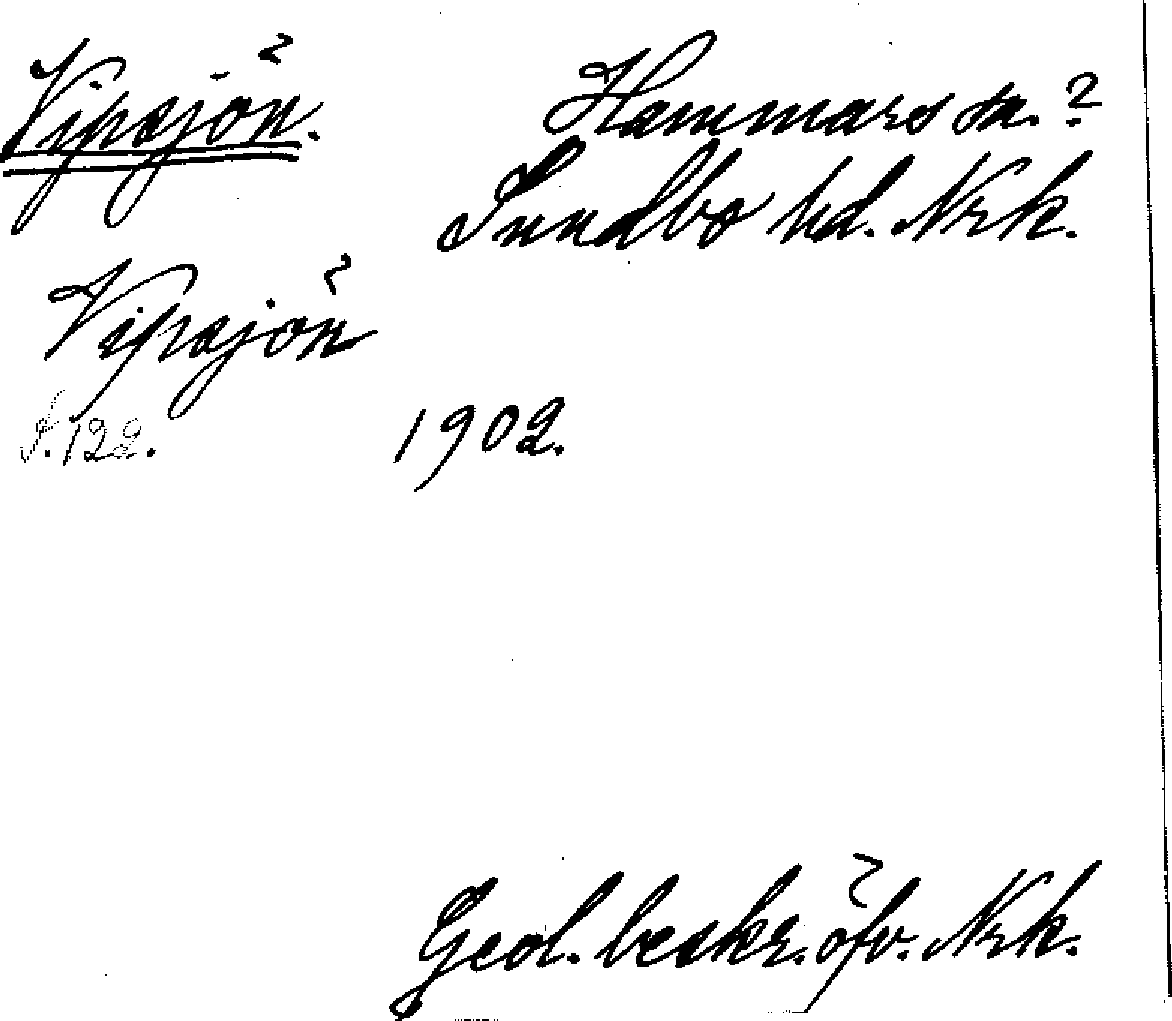 Vipsjön.
Hammars sn.?
Sundbo hd. Nrk.
Vipsjön
S. 122.
1902.
Geol. beskr. öfv. Nrk.